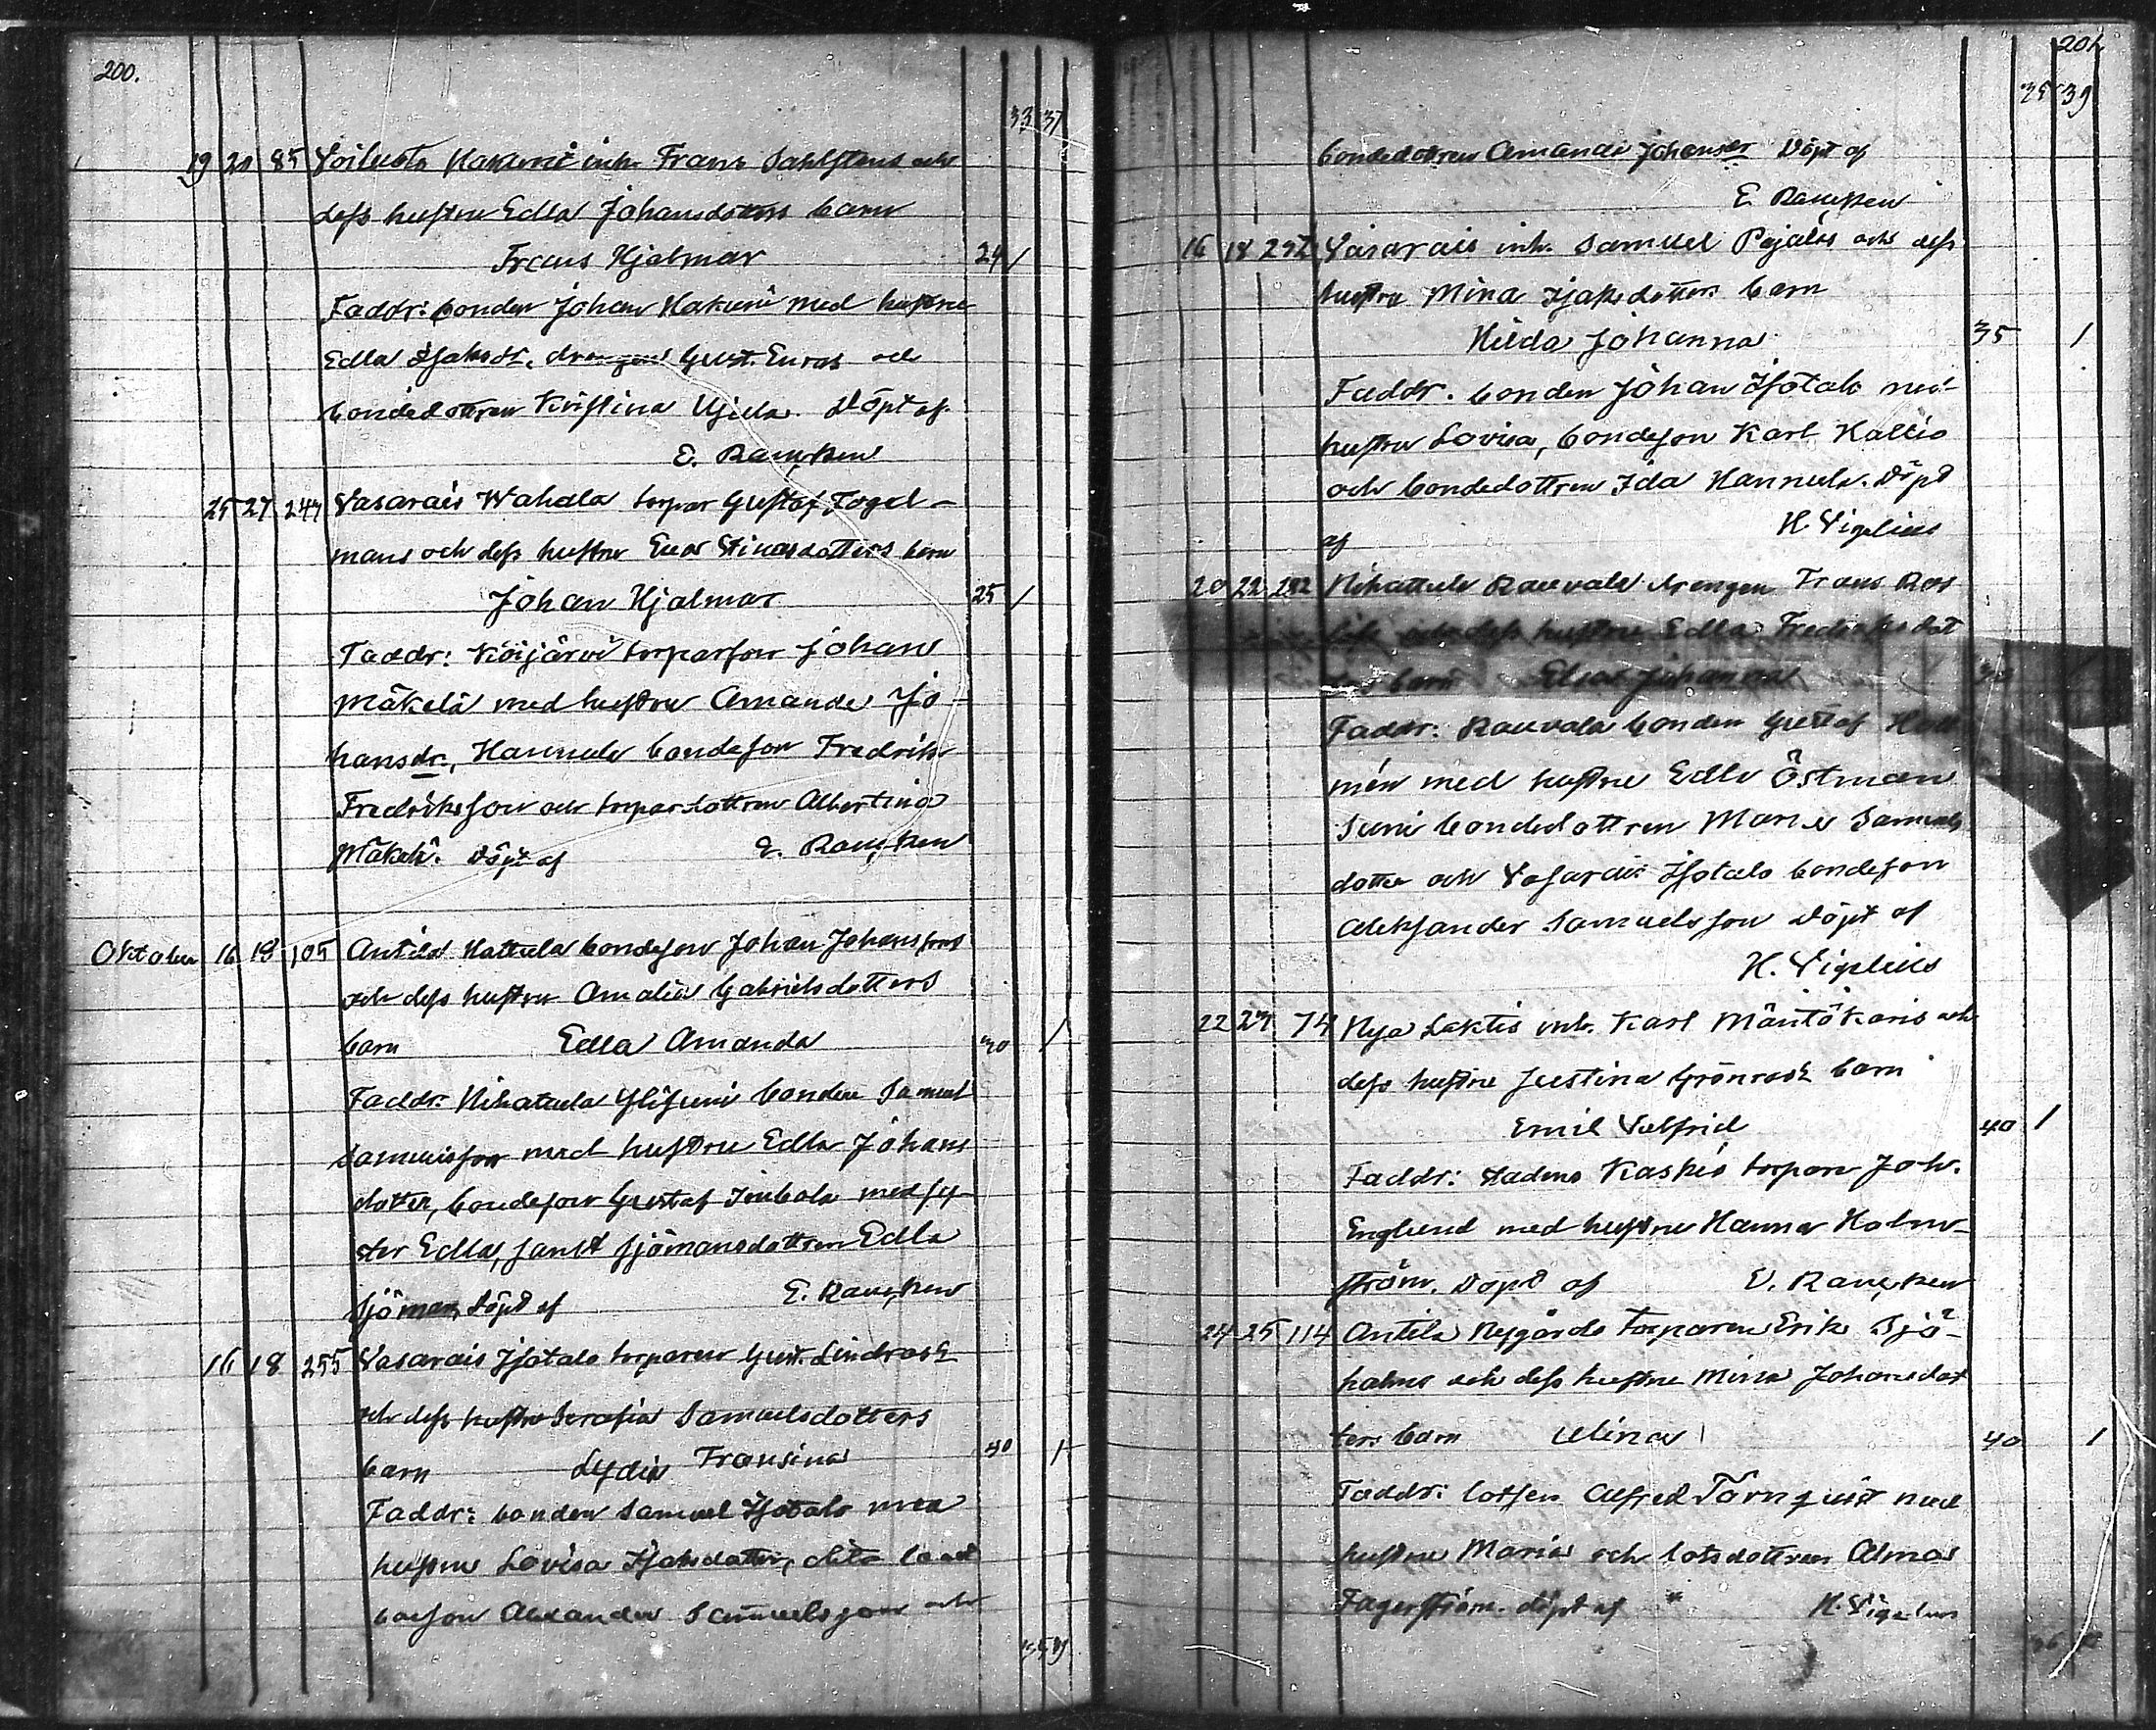 200.
33 37
19 20 85 Voiluoto Hakuni inh. Frans Sahlstens och
dess hustru Edla Johansdotters barn
Frans Hjalmar 24 /
Faddr: bonden Johan Hakuni med hustru
Edla Isaksdr, drengen Gust. Euras och
bondedottren Kristina Ujula. Döpt af
E. Rancken
25 27 247 Vasarais Wahala torpar Gustaf Fogel-
mans och dess hustru Eva Stinasdotters barn
Johan Hjalmar 25 /
Faddr: Köijärvi torparson Johan
Mäkelä med hustru Amanda Jo
hansdr, Hannula bondeson Fredrik
Fredriksson och torpardottren Albertina
Mäkelä. Döpt af E. Rancken
Oktober 16 18 105 Antila Hattula bondeson Johan Johanssons
och dess hustru Amalia Gabrielsdotters
barn Edla Amanda 30 /
Faddr. Nihattula Ylisuni bonden Samuel
Samuelsson med hustru Edla Johans
dotter, bondeson Gustaf med sy-
ster Edla, samt sjömansdottren Edla
Sjöman, Döpt af E. Rancken
16 18 255 Vasarais Isotalo torparen Gust. Lindroos
och dess hustru Serafia Samuelsdotters
barn Lydia Fransina 40 /
Faddr: bonden Samuel Isotalo med
hustru Lovisa Isaksdotter, dito
Alexander Samuelsson och
35 39
201
35 39
bondedottren Amanda Johansdr Döpt af
E. Rancken
16 18 252 Vasarais inh. Samuel Pajalas och dess
hustru Mina Isaksdotters barn
Hilda Johanna 35 /
Faddr. bonden Johan Isotalo med
hustru Lovisa, bondeson Karl Kallio
och bondedottren Ida Hannula. Döpt
af H. Vigelius
20 22 Nihattula Rauvala drengen Frans Ros
och dess hustru Edla Fredriksdot
ters barn Elsa Johanna
Faddr: Rauvala bonden Gustaf
mén med hustru Edla Östman
Suni bondedottren Maria Samuels
dotter och Vasarais Isotalo bondeson
Aleksander Samuelsson Döpt af
H. Vigelius
22 24 74 Nya Laktis inh. Karl Mäntökaris och
dess hustru Justina Grönroos barn
Emil Valfrid 40 /
Faddr: Stadens Kaskis torpare Joh.
Englund med hustru Hanna Holm-
ström. Döpt af E. Rancken
24 25 114 Antila Nygårds torparen Erik Sjö-
holms och dess hustru Mina Johansdot
ters barn Elina 40 /
Faddr: lotsen Alfred Törnqvist med
hustru Maria och lotsdottren Alma
Fagerström. döpt af H. Vigelius